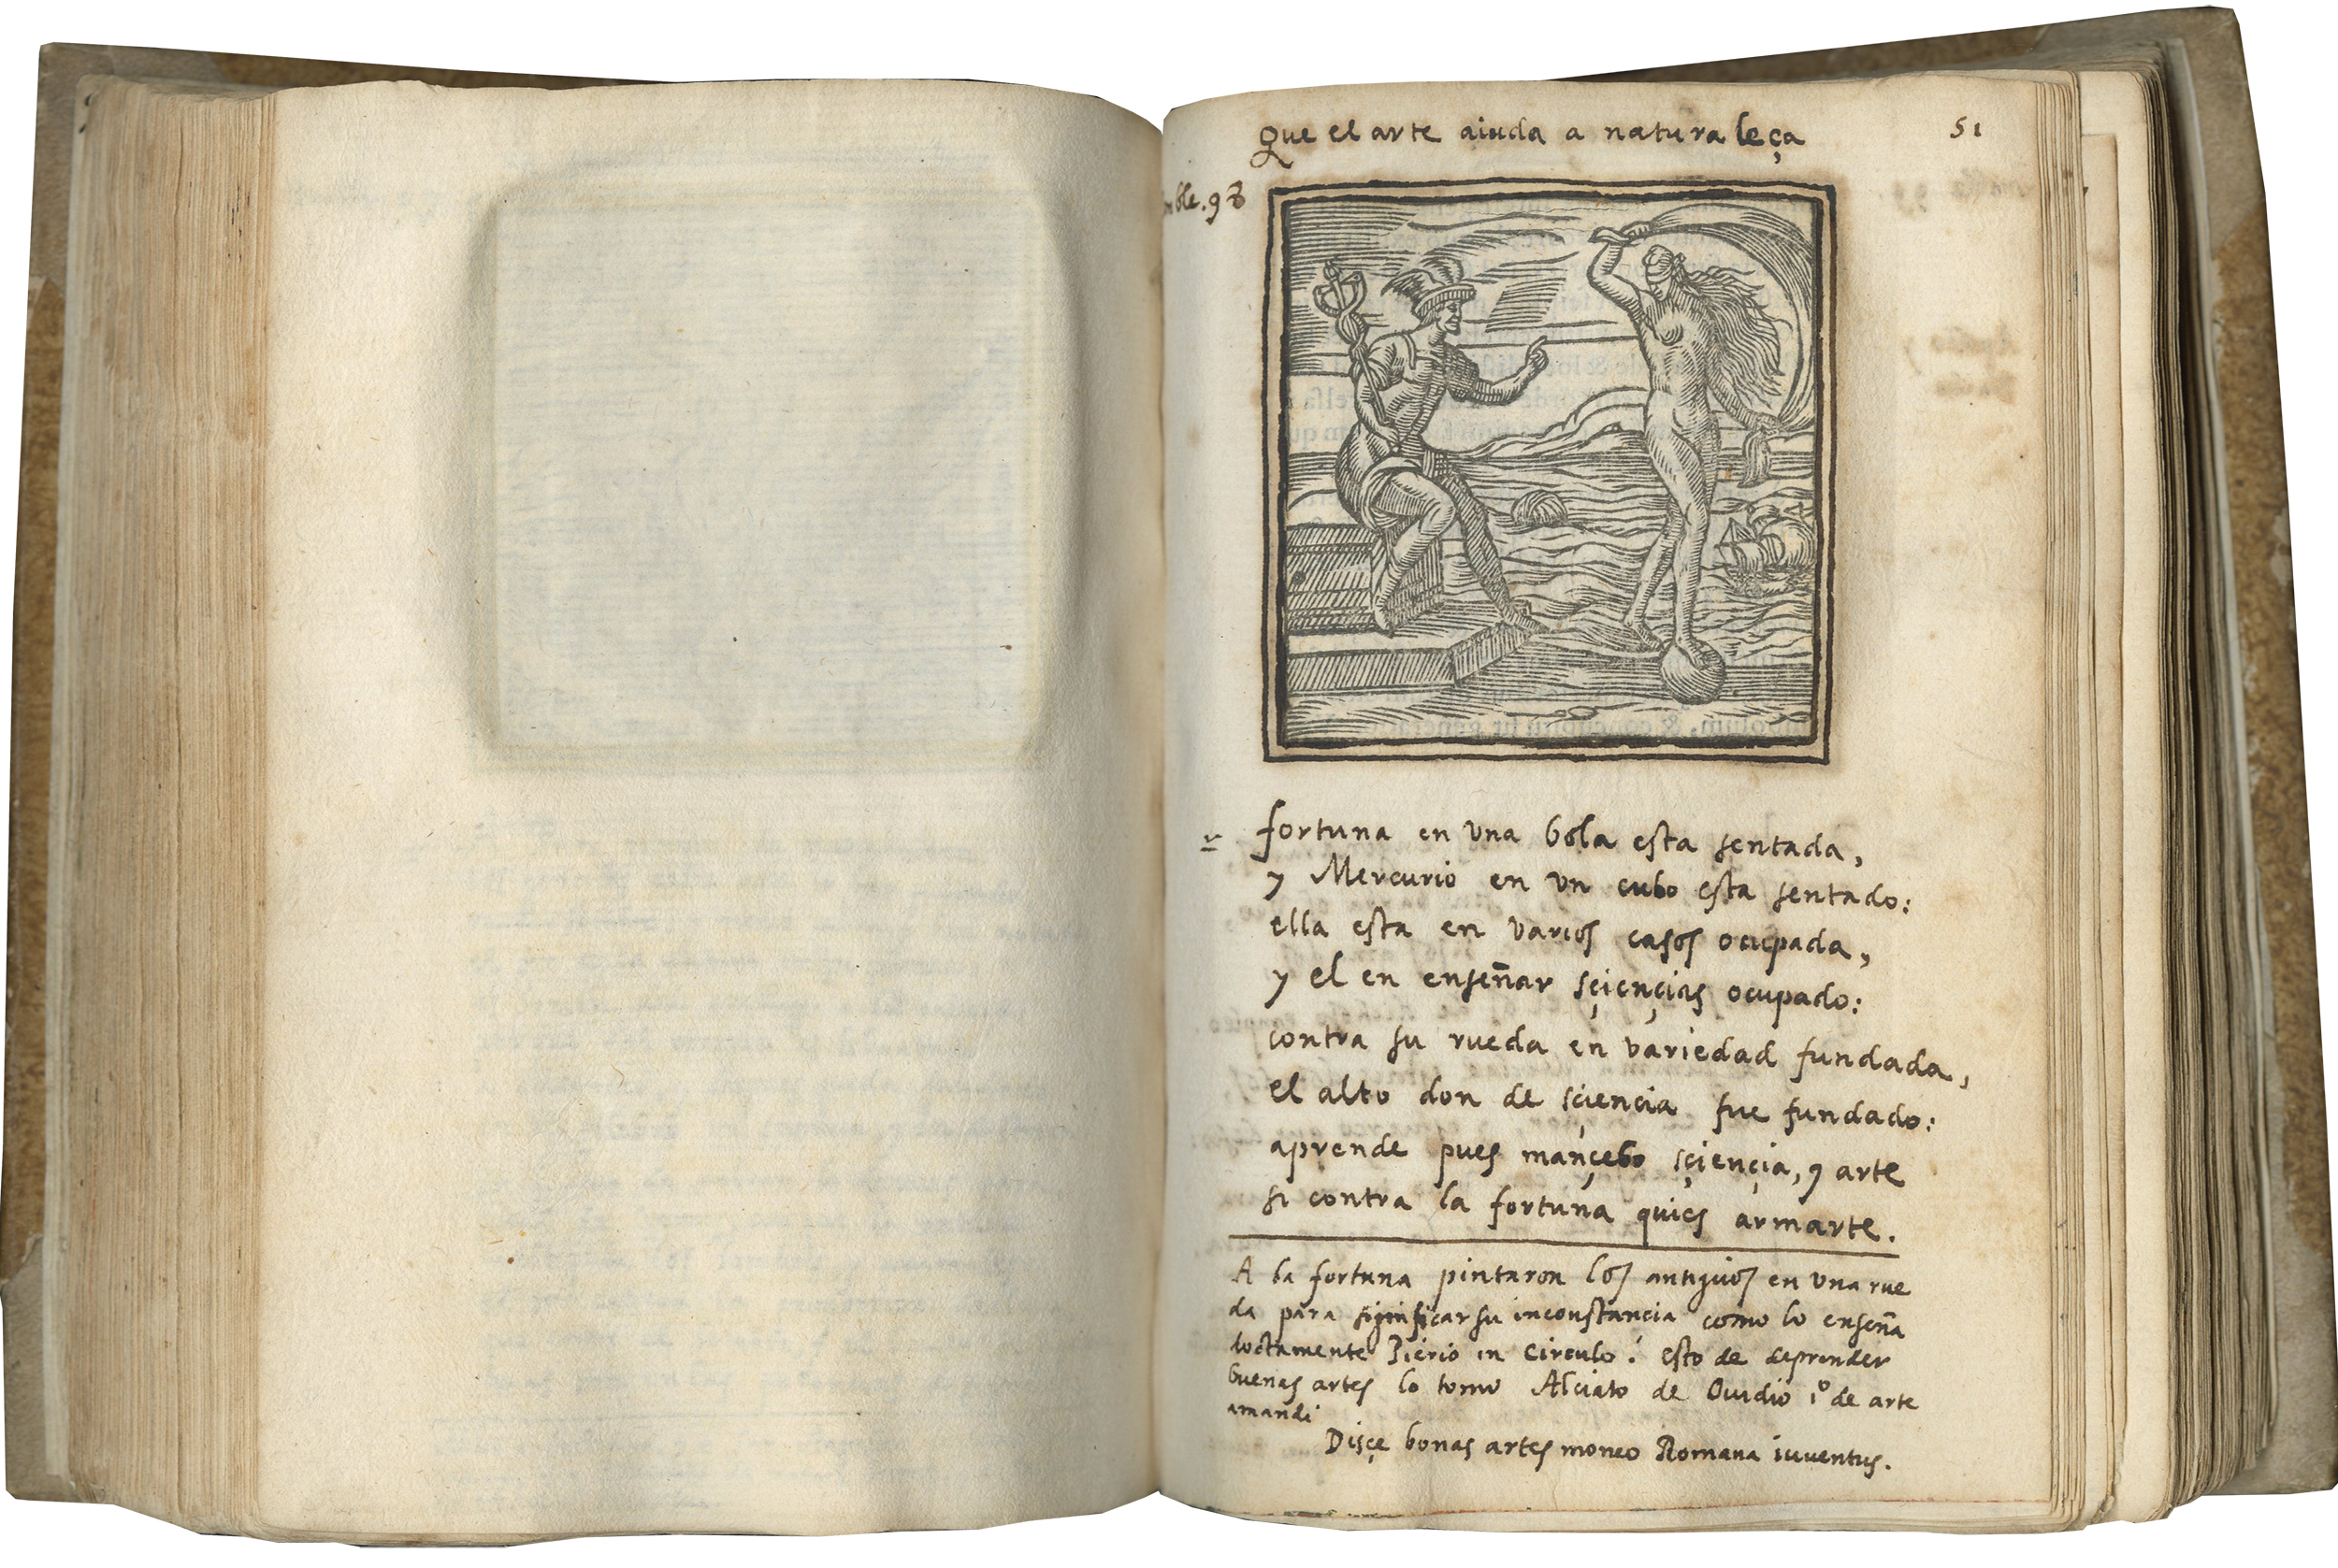 Que el arte aiuda a naturaleça
51
emble. 98
fortuna en una bola esta sentada,
y Mercurio en un cubo esta sentado:
ella esta en varios casos ocupada,
y el en enseñar sçiençias ocupado:
contra su rueda en variedad fundada,
el alto don de sciençia fue fundado:
aprende pues mançebo sçiençia, y arte
si contra la fortuna quies armarte.
A la fortuna pintaron los antiguos en una rue
da para significar su inconstancia como lo enseña
doctamente Pierio in circulo: esto de deprender
buenas artes lo tomo Alciato de Ouidio 1º de arte
amandi
Disçe bonas artes moneo Romana iuuentus.